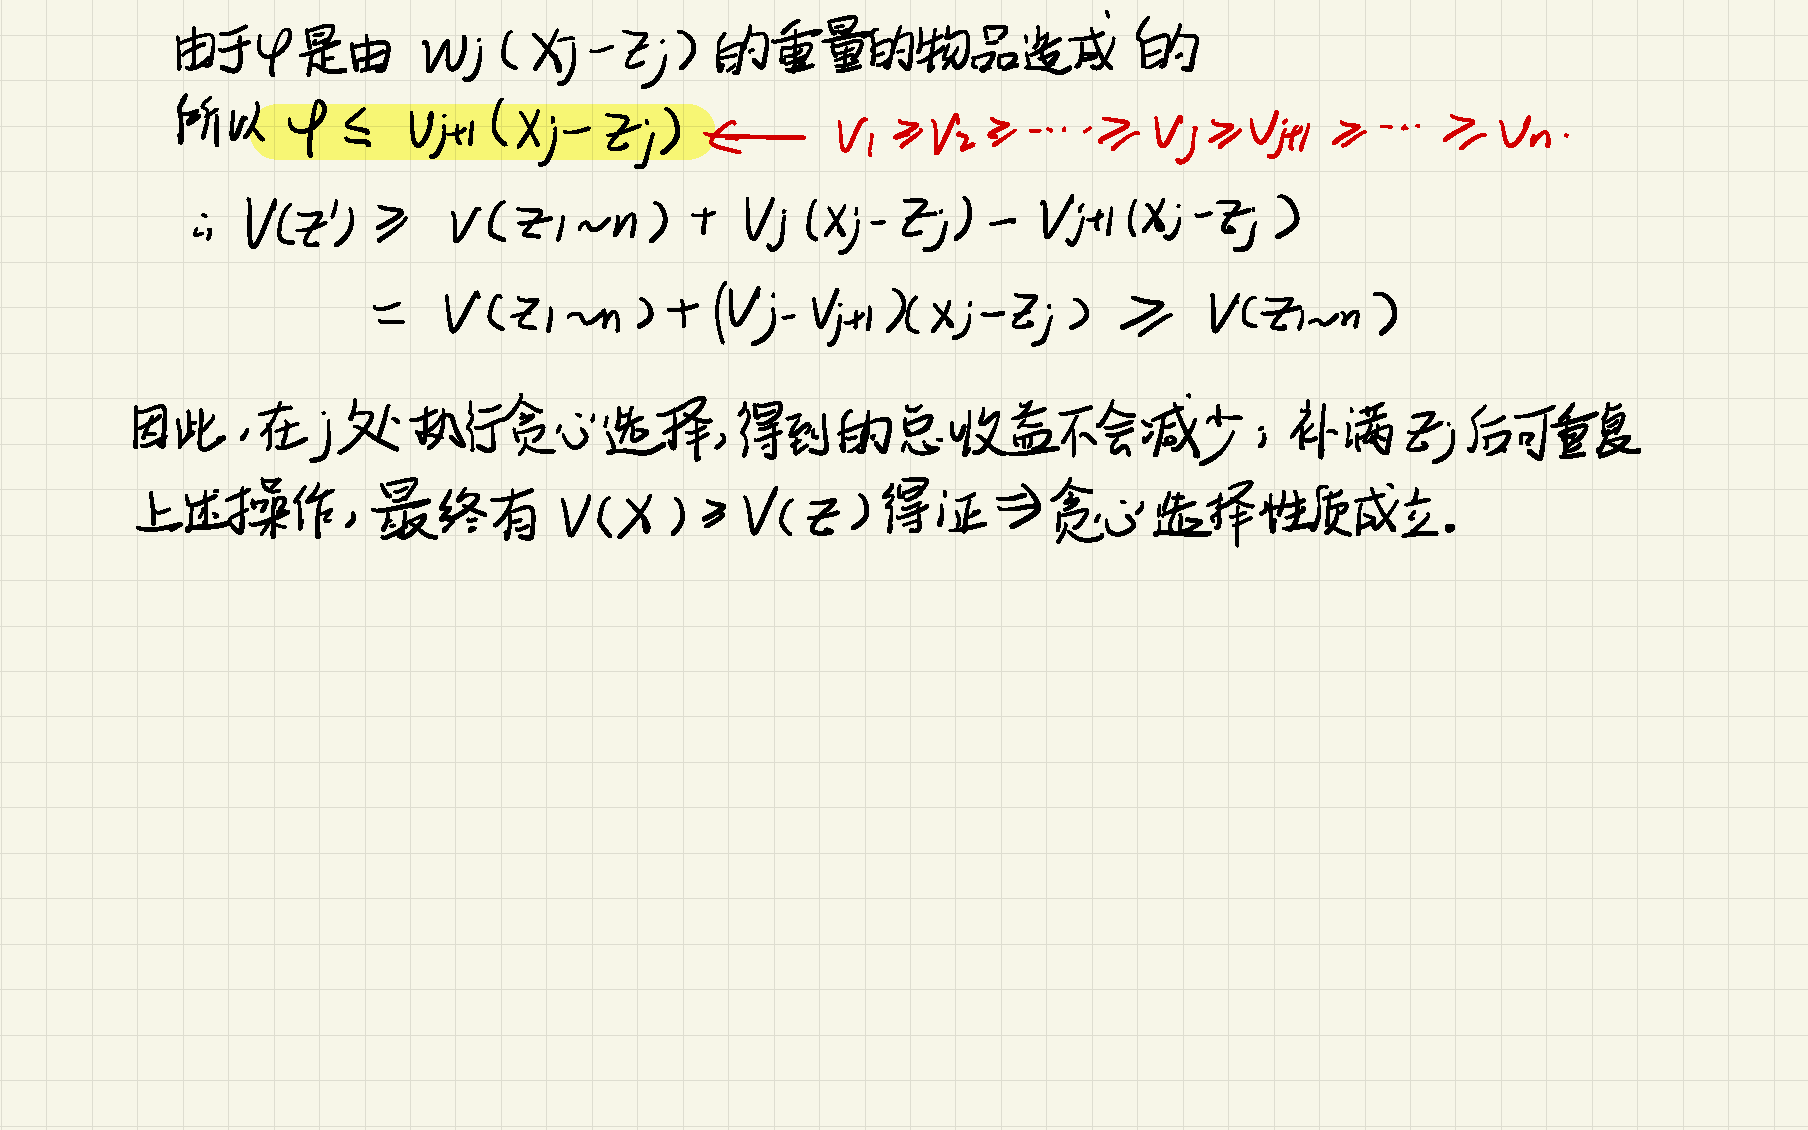 由于φ是由 Wj(Xj-Zj)的重量的物品造成的
所以 φ ≤ Vj+1(Xj-Zj) ← V1≥V2≥……≥Vj≥Vj+1≥…≥Vn.
∴ V(Z')≥ V(Z1~n)+Vj(Xj-Zj)-Vj+1(Xj-Zj)
= V(Z1~n)+(Vj-Vj+1)(Xj-Zj) ≥ V(Z1~n)
因此,在j处执行贪心选择,得到的总收益不会减少;补满Zj后可重复
上述操作,最终有 V(X)≥V(Z)得证⇒贪心选择性质成立.